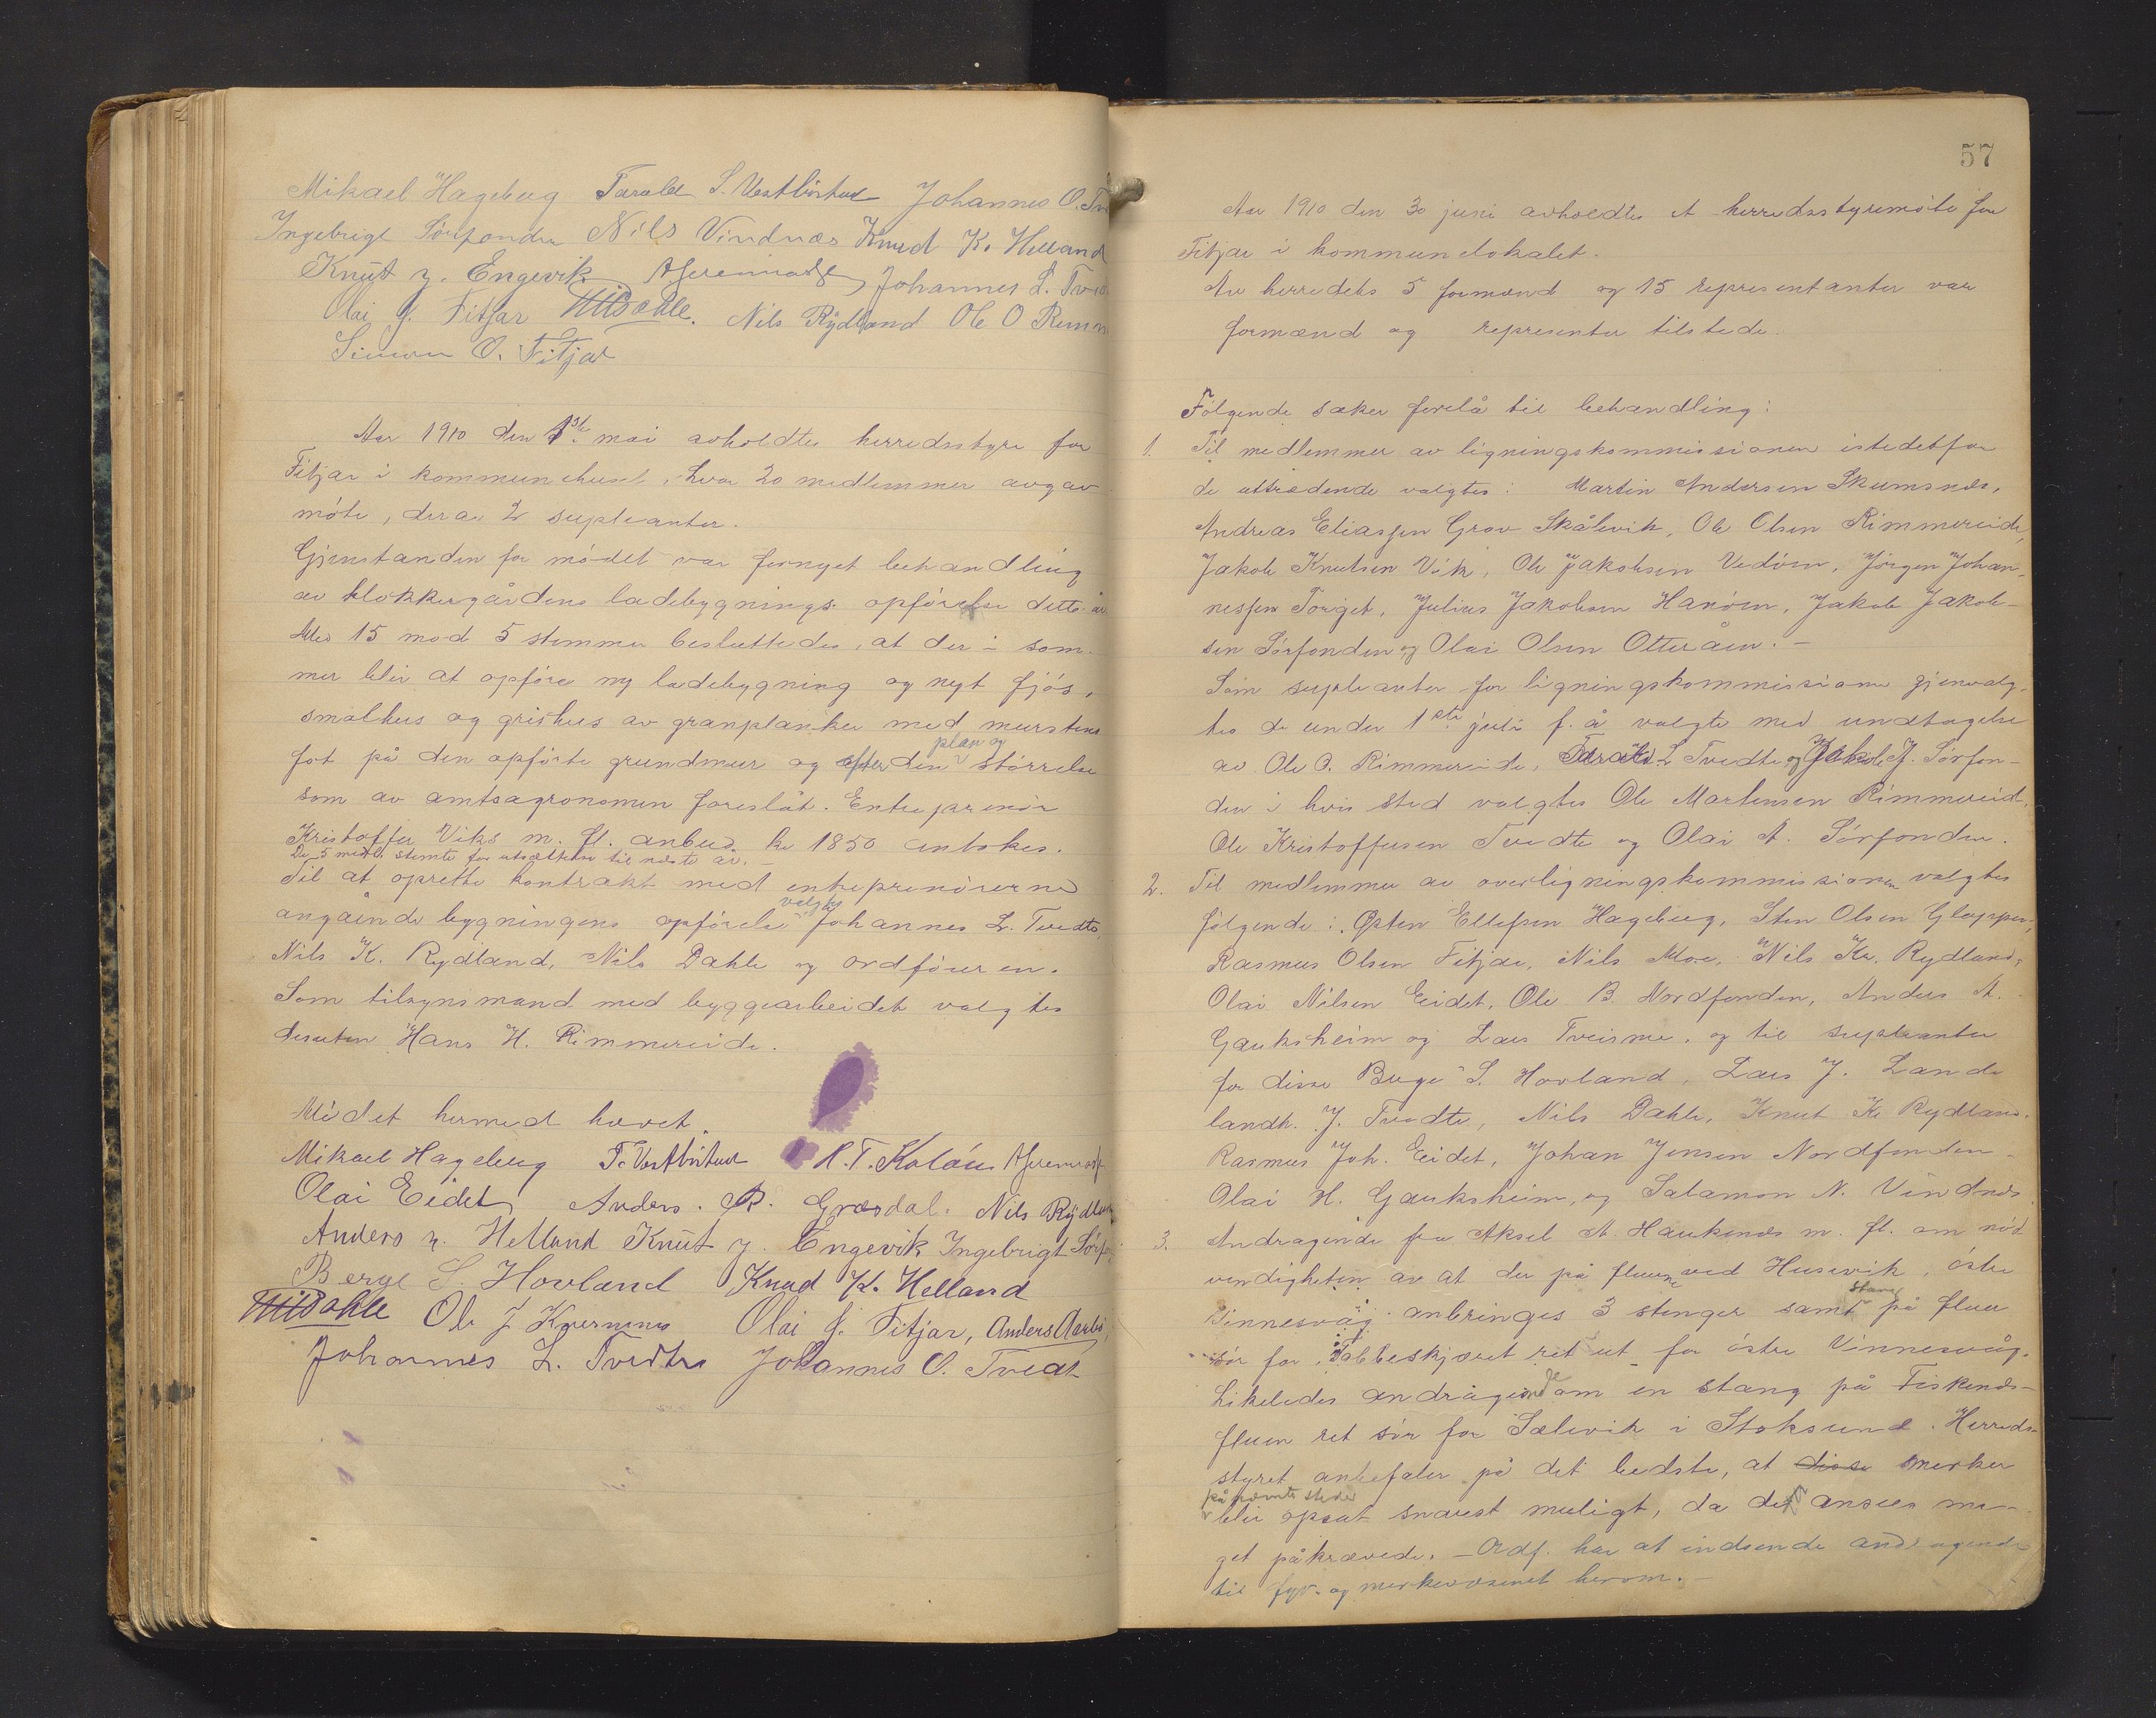 Mikael Hageberg Tarald S. Vestböstad Johannes O. Tv
Ingebrigt Sörfonden Nils Vindnæs Knud K. Helland
Knut J. Engevik Johannes L. Tved
Olai J. Fitjar NNDahle. Nils Rydland Ole O Rimm
Simon O. Fitjar
Aar 1910 den 1ste mai avholdtes herredsstyre for
Fitjar i kommunehuset, hvor 20 medlemmer avgav
möte, derav 2 supleanter.
Gjenstanden for mödet var fornyet behandling
av klokkergårdens ladebygnings opförelse dette år
Med 15 mod 5 stemmer besluttedes, at der i som-
mer blir at opföre ny ladebygning og nyt fjös,
smalhus og grishus av granplanker med murstens
fot på den opförte grundmur og efter den plan og större­lse
som av amtsagronomen foreslåt. Entreprenör
Kristoffer Viks m. fl. anbud kr 1850 antokes.
De 5 medl. stemte for utsættelse til næste år. -
Til at oprette kontrakt med entreprenörerne
angående bygningens opförelse valgtes Johannes L. Tvedte,
Nils K. Rydland, Nils Dahle og ordföreren.
Som tilsynsmand med byggearbeidet valgtes
desuten Hans H. Rimmereide.
Mödet hermed hævet.
Mikael Hageberg T. Vestböstad H. T. Koløen
Olai Eidet Anders. R. Græsdal. Nils Rydland
Anders N. Helland Knut J. Engevik Ingebrigt Sörfo
Berge S. Hovland Knud K. Helland
NNDahle Ole J Olai J. Fitjar, Anders Aarbö,
Johannes L. Tvedte Johannes O. Tvedt
57
Aar 1910 den 30 juni avholdtes et herredsstyremöte for
Fitjar i kommunelokalet.
Av herredets 5 formænd og 15 representanter var
formænd og representer tilstede.
Fölgende saker forelå til behandling:
1. Til medlemmer av ligningskommissionen istedetfor
de uttrædende valgtes: Martin Andersen Skumsnes,
Andreas Eliassen Grov Skålevik, Ole Olsen Rimmereide,
Jakob Knutsen Vik, Ole Jakobsen Vedöen, Jörgen Johan-
nessen Torget, Julius Jakobsen Hanöen, Jakob Jakob-
sen Sörfonden og Olai Olsen Otteråen. -
Som supleanter for ligningskommissionen gjenvalg-
tes de under 1ste juli f. å valgte med undtagelse
av Ole O. Rimmereide, Tarald L Tvedte og Jakob J. Sörfon-
den i hvis sted valgtes Ole Martensen Rimmereid,
Ole Kristoffersen Tvedte og Olai A. Sörfonden.
2. Til medlemmer av overligningskommissionen valgtes
fölgende: Østen Ellefsen Hageberg, Sten Olsen Gloppen,
Rasmus Olsen Fitjar, Nils Moe, Nils Kr. Rydland,
Olai Nilsen Eidet, Ole B. Nordfonden, Anders A.
Gauksheim og Lars Tveisme, og til supleanter
for disse Berge S. Hovland, Lars J. Lande
landh. J. Tvedte, Nils Dahle, Knut K. Rydland.
Rasmus Joh. Eidet, Johan Jensen Nordfonden -
Olai H. Gauksheim, og Salamon N. Vindnes.
3. Andragende fra Aksel A. Haukenæs m. fl. om nöd-
vendigheten av at der på fluene ved Husevik, östre
Vinnesvåg anbringes 3 stenger samt stang på fluen
sör for Tabbeskjæret ret ut for östre Vinnesvåg.
Likeledes andragende om en stang på Fiskenes-
fluen ret sör for Sælevik i Stoksund. Herreds-
styret anbefaler på det bedste, at disse merker
på nævnte steder
blir opsat snarest muligt, da det ansees me-
get påkrævede. - Ordf. har at indsende andragende
til fyr- og merkevæsenet herom. -